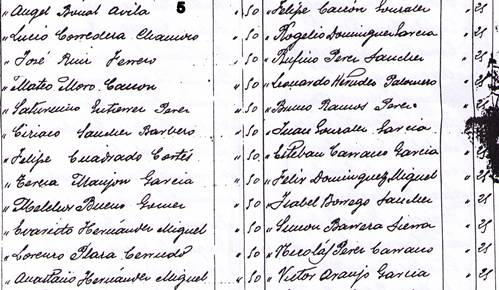 " Angel Bonal Avila 5 " 50 " Felipe Carrón Gonzalez " 25
" Lucio Corredera Chamorro " 50 " Rogelio Dominguez Garcia " 25
" José Ruiz Ferrero " 50 " Rufino Perez Sanchez " 25
" Mateo Moro Carron " 50 " Leonardo Palomero " 25
" Saturnino Gutierrez Perez " 50 " Bruno Ramos Perez " 25
" Ciriaco Sanchez Barbero " 50 " Juan Gonzalez Garcia " 25
" Felipe Cuadrado Cortés " 50 " Esteban Carrasco Garcia "
" Teresa Garcia " 50 " Felix Dominguez Miguel " 25
" Bueno Gomez " 50 " Isabel Borrego Sanchez " 25
" Evaristo Hernández Miguel " 50 " Simon Barrera Sierra " 25
" Lorenzo Plaza " 50 " Nicolás Perez Carrasco " 25
" Anastasio Hernández Miguel " 50 " Victor Araujo Garcia " 25